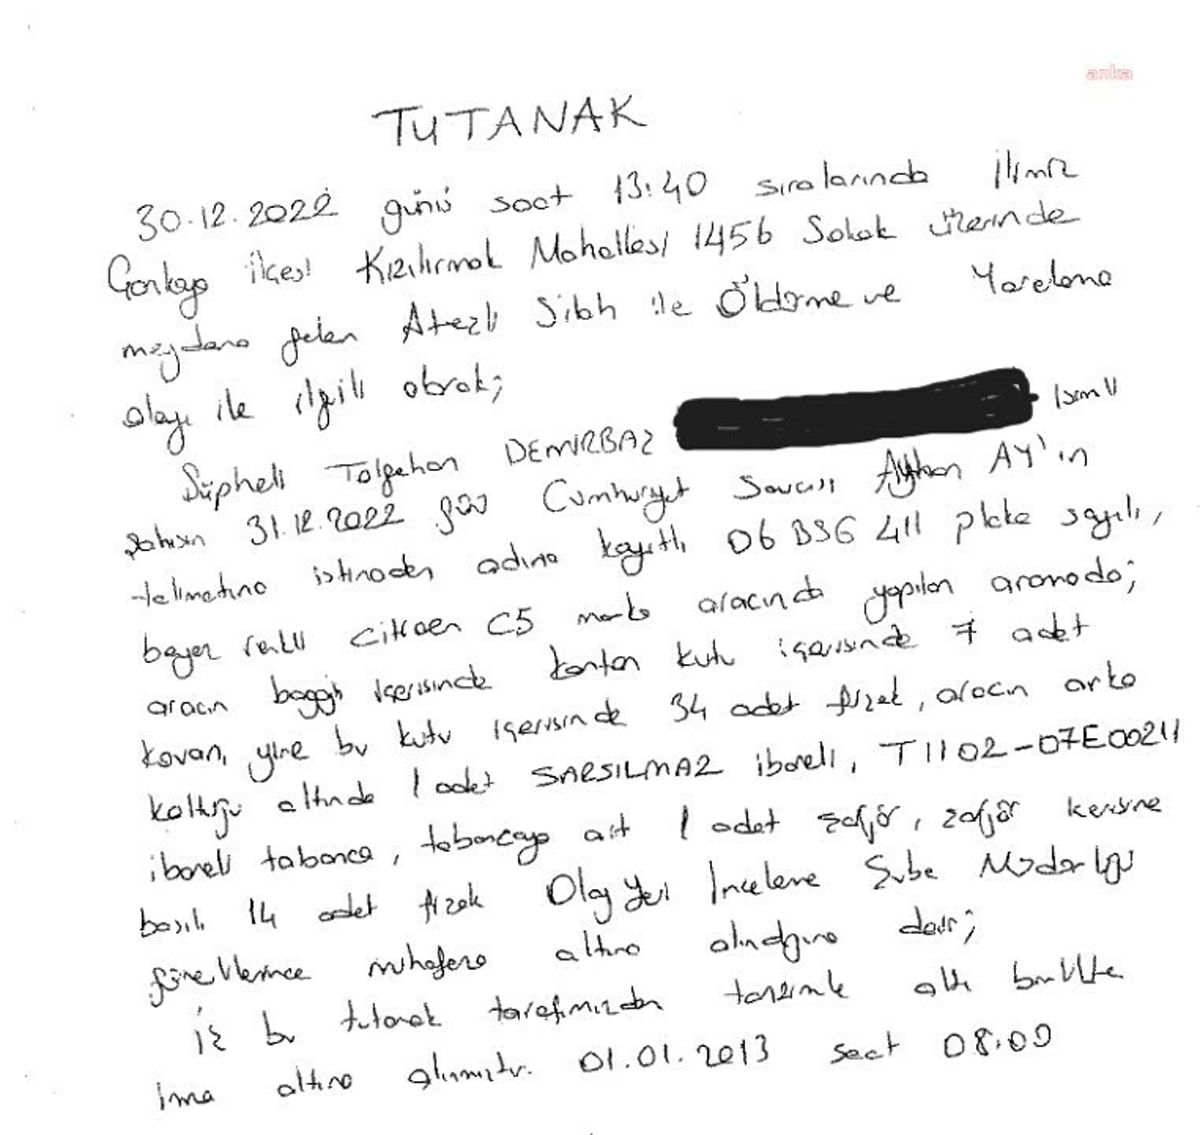 anka
TUTANAK
30.12.2022 günü saat 13:40 sıralarında İlimiz
Çankaya İlçesi Kızılırmak Mahallesi 1456 Sokak üzerinde
meydana gelen Ateşli Silah ile Öldürme ve Yaralama
olayı ile ilgili olarak;
Şüpheli Tolgahan DEMİRBAŞ isimli
şahısın 31.12.2022 günü Cumhuriyet Savcısı Ayhan AY'ın
talimatına istinaden adına kayıtlı 06 BSG 411 plaka sayılı,
beyaz renkli Citroen C5 marka aracında yapılan aramada;
aracın bagajı içerisinde karton kutu içerisinde 7 adet
kovan, yine bu kutu içerisinde 34 adet fişek, aracın arka
koltuğu altında 1 adet SARSILMAZ ibareli, T1102-07E00211
ibareli tabanca, tabancaya ait 1 adet şarjör, şarjör kerisine
basılı 14 adet fişek Olay Yeri İnceleme Şube Müdürlüğü
görevlilerince muhafaza altına alındığına dair;
İş bu tutanak tarafımızdan tanzimle altı birlikte
imza altına alınmıştır. 01.01.2013 saat 08:00